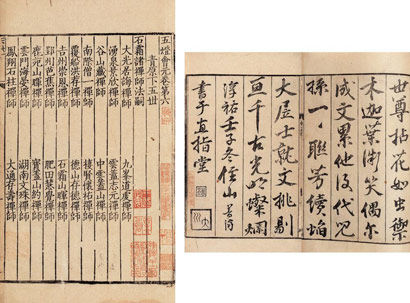 五燈會元卷第六
青原下五世
石霜諸禪師法嗣
大光居誨禪師
九峯道虔禪師
湧泉景欣禪師
雲蓋志元禪師
谷山藏禪師
中雲蓋山禪師
南際僧一禪師
棲賢懷祐禪師
覆船洪荐禪師
德山存德禪師
吉州崇恩禪師
石霜山暉禪師
郢州芭蕉禪師
肥田慧覺禪師
鹿苑山暉禪師
寶蓋山約禪師
雲門海晏禪師
湖南文殊禪師
鳳翔石柱禪師
大通存壽禪師
世尊拈花如虫禦
木迦葉微笑偶尔
成文累他後代兒
孫一一聯芳續焰
大居士就文挑剔
亘千古光明燦爛
淳祐壬子冬住山
書于直指堂